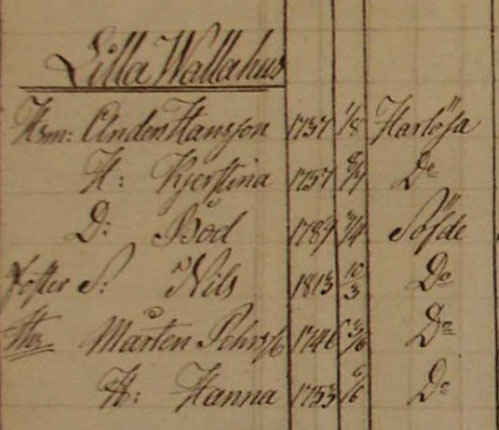 Lilla Wallahus
Hsm: Anders Hansson 1757 1/8 Harlösa
H: Kjerstina 1757 8/7 Do
D: Boel 1789 3/4 Söfde
foster S: Nils 1813 10/3 Do
Mårten Pehrss 1746 3/6 Do
H: Hanna 1753 6/6 Do